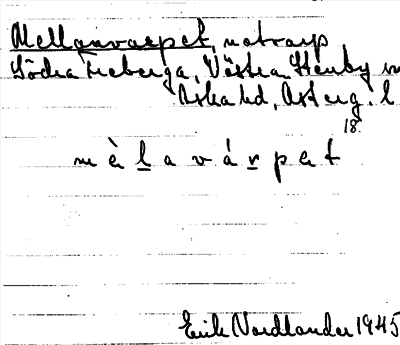 Mellanvarpet, notvarp
Södra Freberga, Västra Stenby
Aska hd, Österg. l
18
m è l a v á r p e t
Erik Nordlander 1945